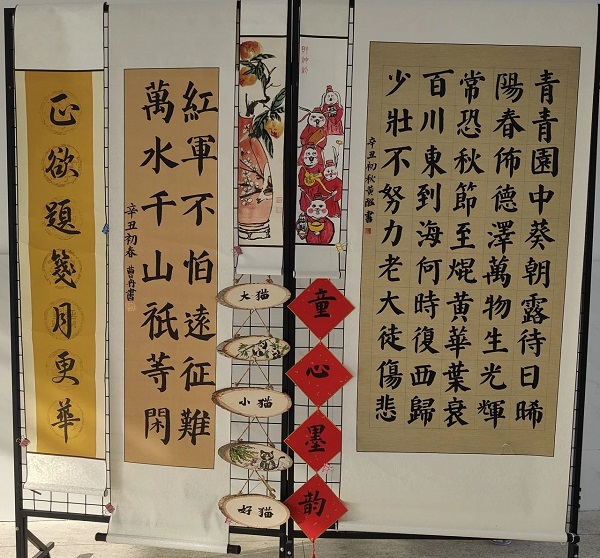 青青園中葵朝露待日晞
陽春佈德澤萬物生光輝
常恐秋節至焜黃華葉衰
百川東到海何時復西歸
少壯不努力老大徒傷悲
辛丑初秋黄書
童心墨韵
大猫
小猫
好猫
紅軍不怕遠征難
萬水千山祇等閑
辛丑初春 曹丹書
正欲題箋月更華